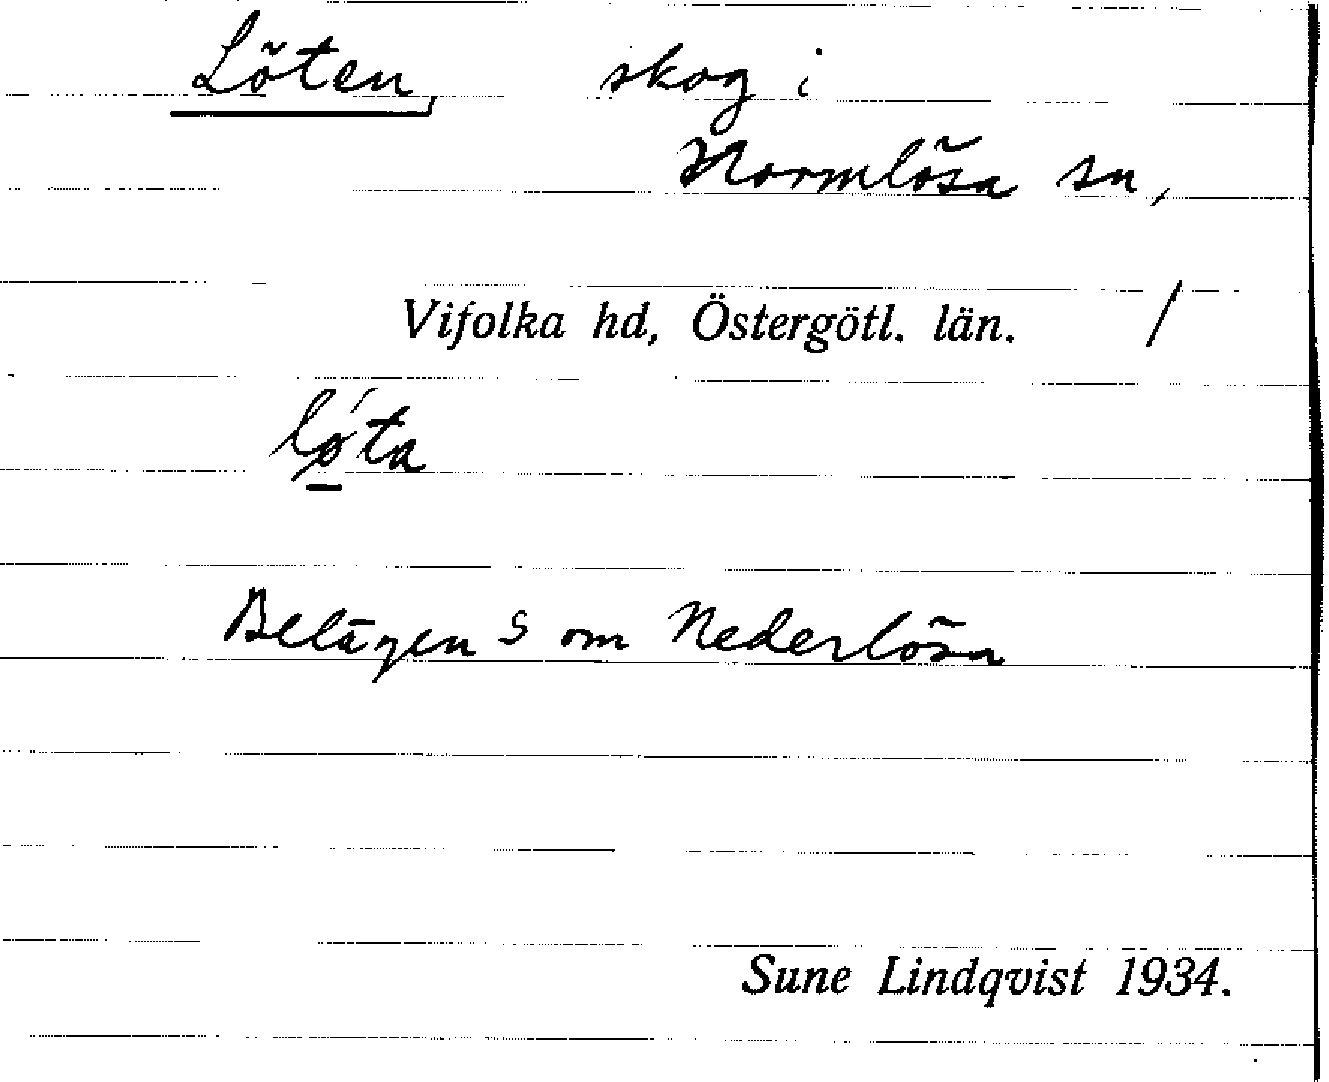 Löten, skog i
Normlösa sn,
Vifolka hd, Östergötl. län. /
lǿ̱ta
Belägen S om Nederlösa
Sune Lindqvist 1934.